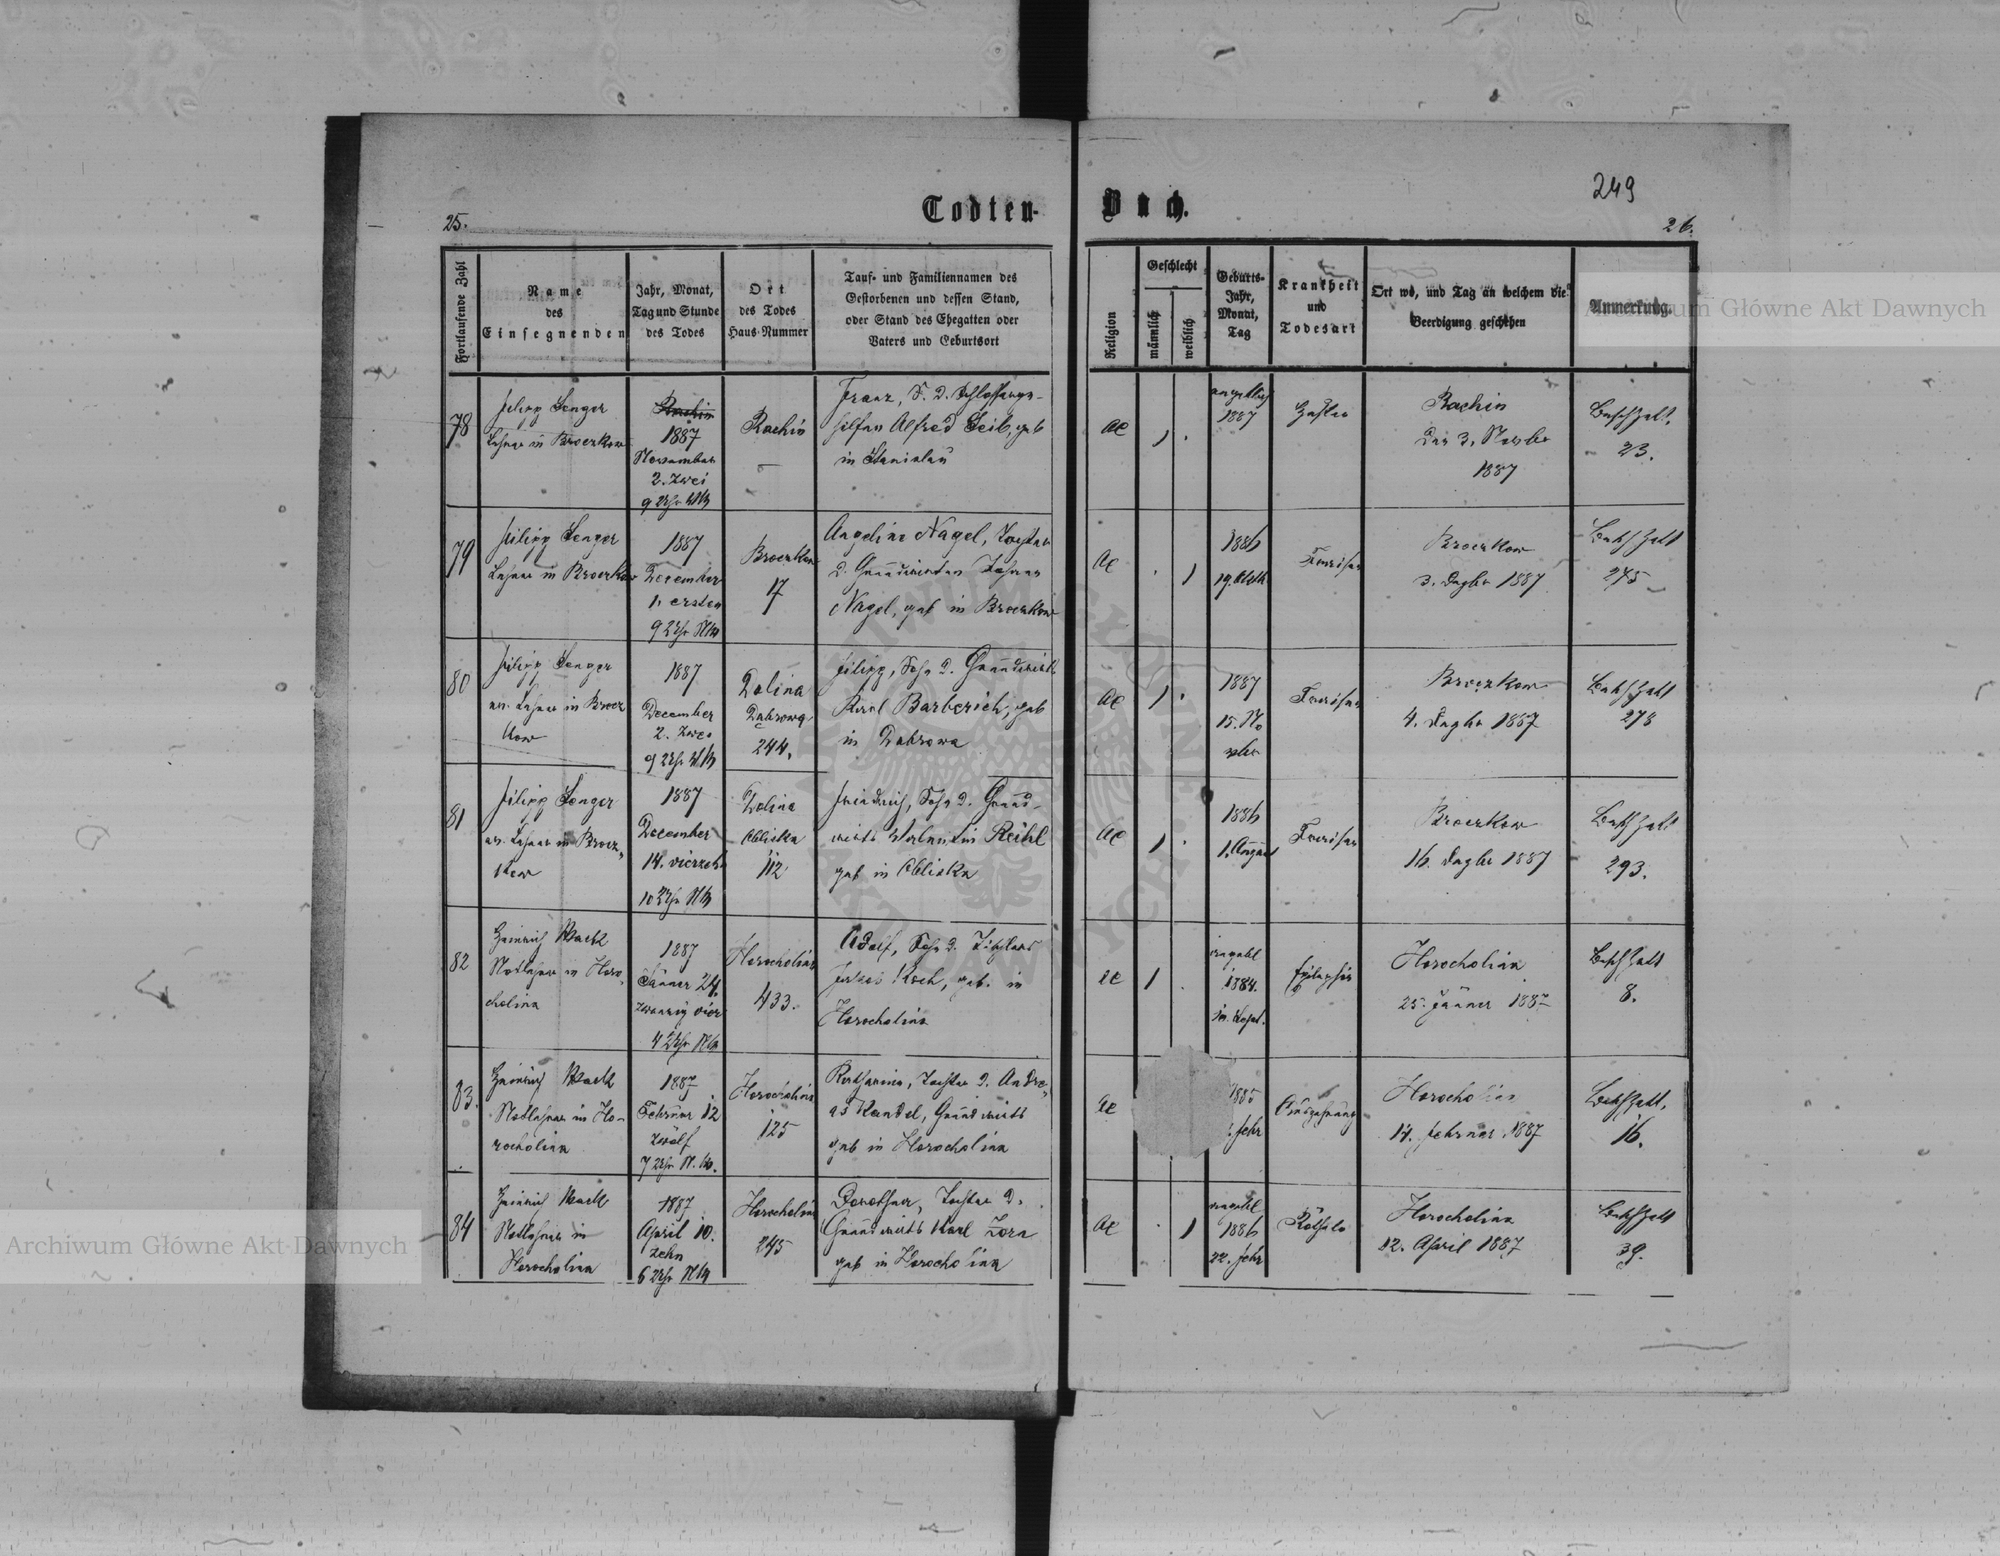 249
25.
Todten-
Buch.
26.
Fortlaufende Zahl
Name
des
Einsegnenden
Jahr, Monat,
Tag und Stunde
des Todes
Ort
des Todes
Haus-Nummer
Tauf- und Familiennamen des
Gestorbenen und dessen Stand,
oder Stand des Ehegatten oder
Vaters und Geburtsort
Religion
Geschlecht
männlich
weiblich
Geburts-
Jahr,
Monat,
Tag
Krankheit
und
Todesart
Ort wo, und Tag an welchem die
Beerdigung geschehen
Anmerkung.
78
Filipp Senger
Lehrer in Broczkow
Rachin
1887
November
2. zwei
9 Uhr
Rachin
Franz, S. d.
Alfred Leib, geb
in Stanislau
AC
1887
Rachin
den 3. Novbr
1887
23.
79
Filipp Senger
Lehrer in Broczkow
1887
December
1. ersten
9 Uhr Nm
Broczkow
17
Angeline Nagel, Tochter
d. Grundwirten Johann
Nagel, geb in Broczkow
AC
1886
19.
Broczkow
3. Dezbr 1887
275
80
Filipp Senger
ev. Lehrer in Brocz
kow
1887
December
2. zwei
9 Uhr
Dolina
Dabrowa
244.
Filipp, Sohn d. Grundwirts
Karl Barberich, geb
in Dabrowa
AC
1887
15. No
vbr
Broczkow
4. Dezbr 1887
278
81
Filipp Senger
ev. Lehrer in Brocz„
kow
1887
December
14. vierzehn
10 Uhr Nm
Dolina
Obliska
112
Friedrich, Sohn d. Grund-
wirts Valentin Reihl
geb in Obliska
AC
1886
1. August
Broczkow
16. Dezbr 1887
293.
82
Heinrich Mack
Notlehrer in Horo„
cholina
1887
Jänner 24.
zwanzig vier
4 Uhr Nm
Horocholina
433.
Adolf, Sohn d.
Koch, geb. in
Horocholina
AC
1884.
Horocholina
25. Jänner 1887
8.
83.
Heinrich Mack
Notlehrer in Ho-
rocholina
1887
Februar 12
zwölf
7 Uhr N. M.
Horocholina
125
Katharina, Tochter d. Andre„
as Kandel, Grundwirts
geb in Horocholina
AC
Febr
Horocholina
14. Februar 1887
16.
84
Heinrich Mack
Notlehrer in
Horocholina
1887
April 10.
zehn
6 Uhr Nm
Horocholina
245
Dorothea, Tochter d.
Grundwirts Karl Zorn
geb in Horocholina
AC
1886
22. Febr
Horocholina
12. April 1887
39.
Archiwum Główne Akt Dawnych
Archiwum Główne Akt Dawnych